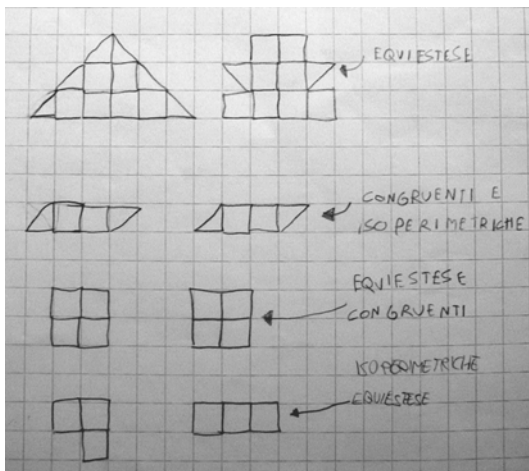 EQUIESTESE
CONGRUENTI E
ISOPERIMETRICHE
EQUIESTESE
CONGRUENTI
ISOPERIMETRICHE
EQUIESTESE